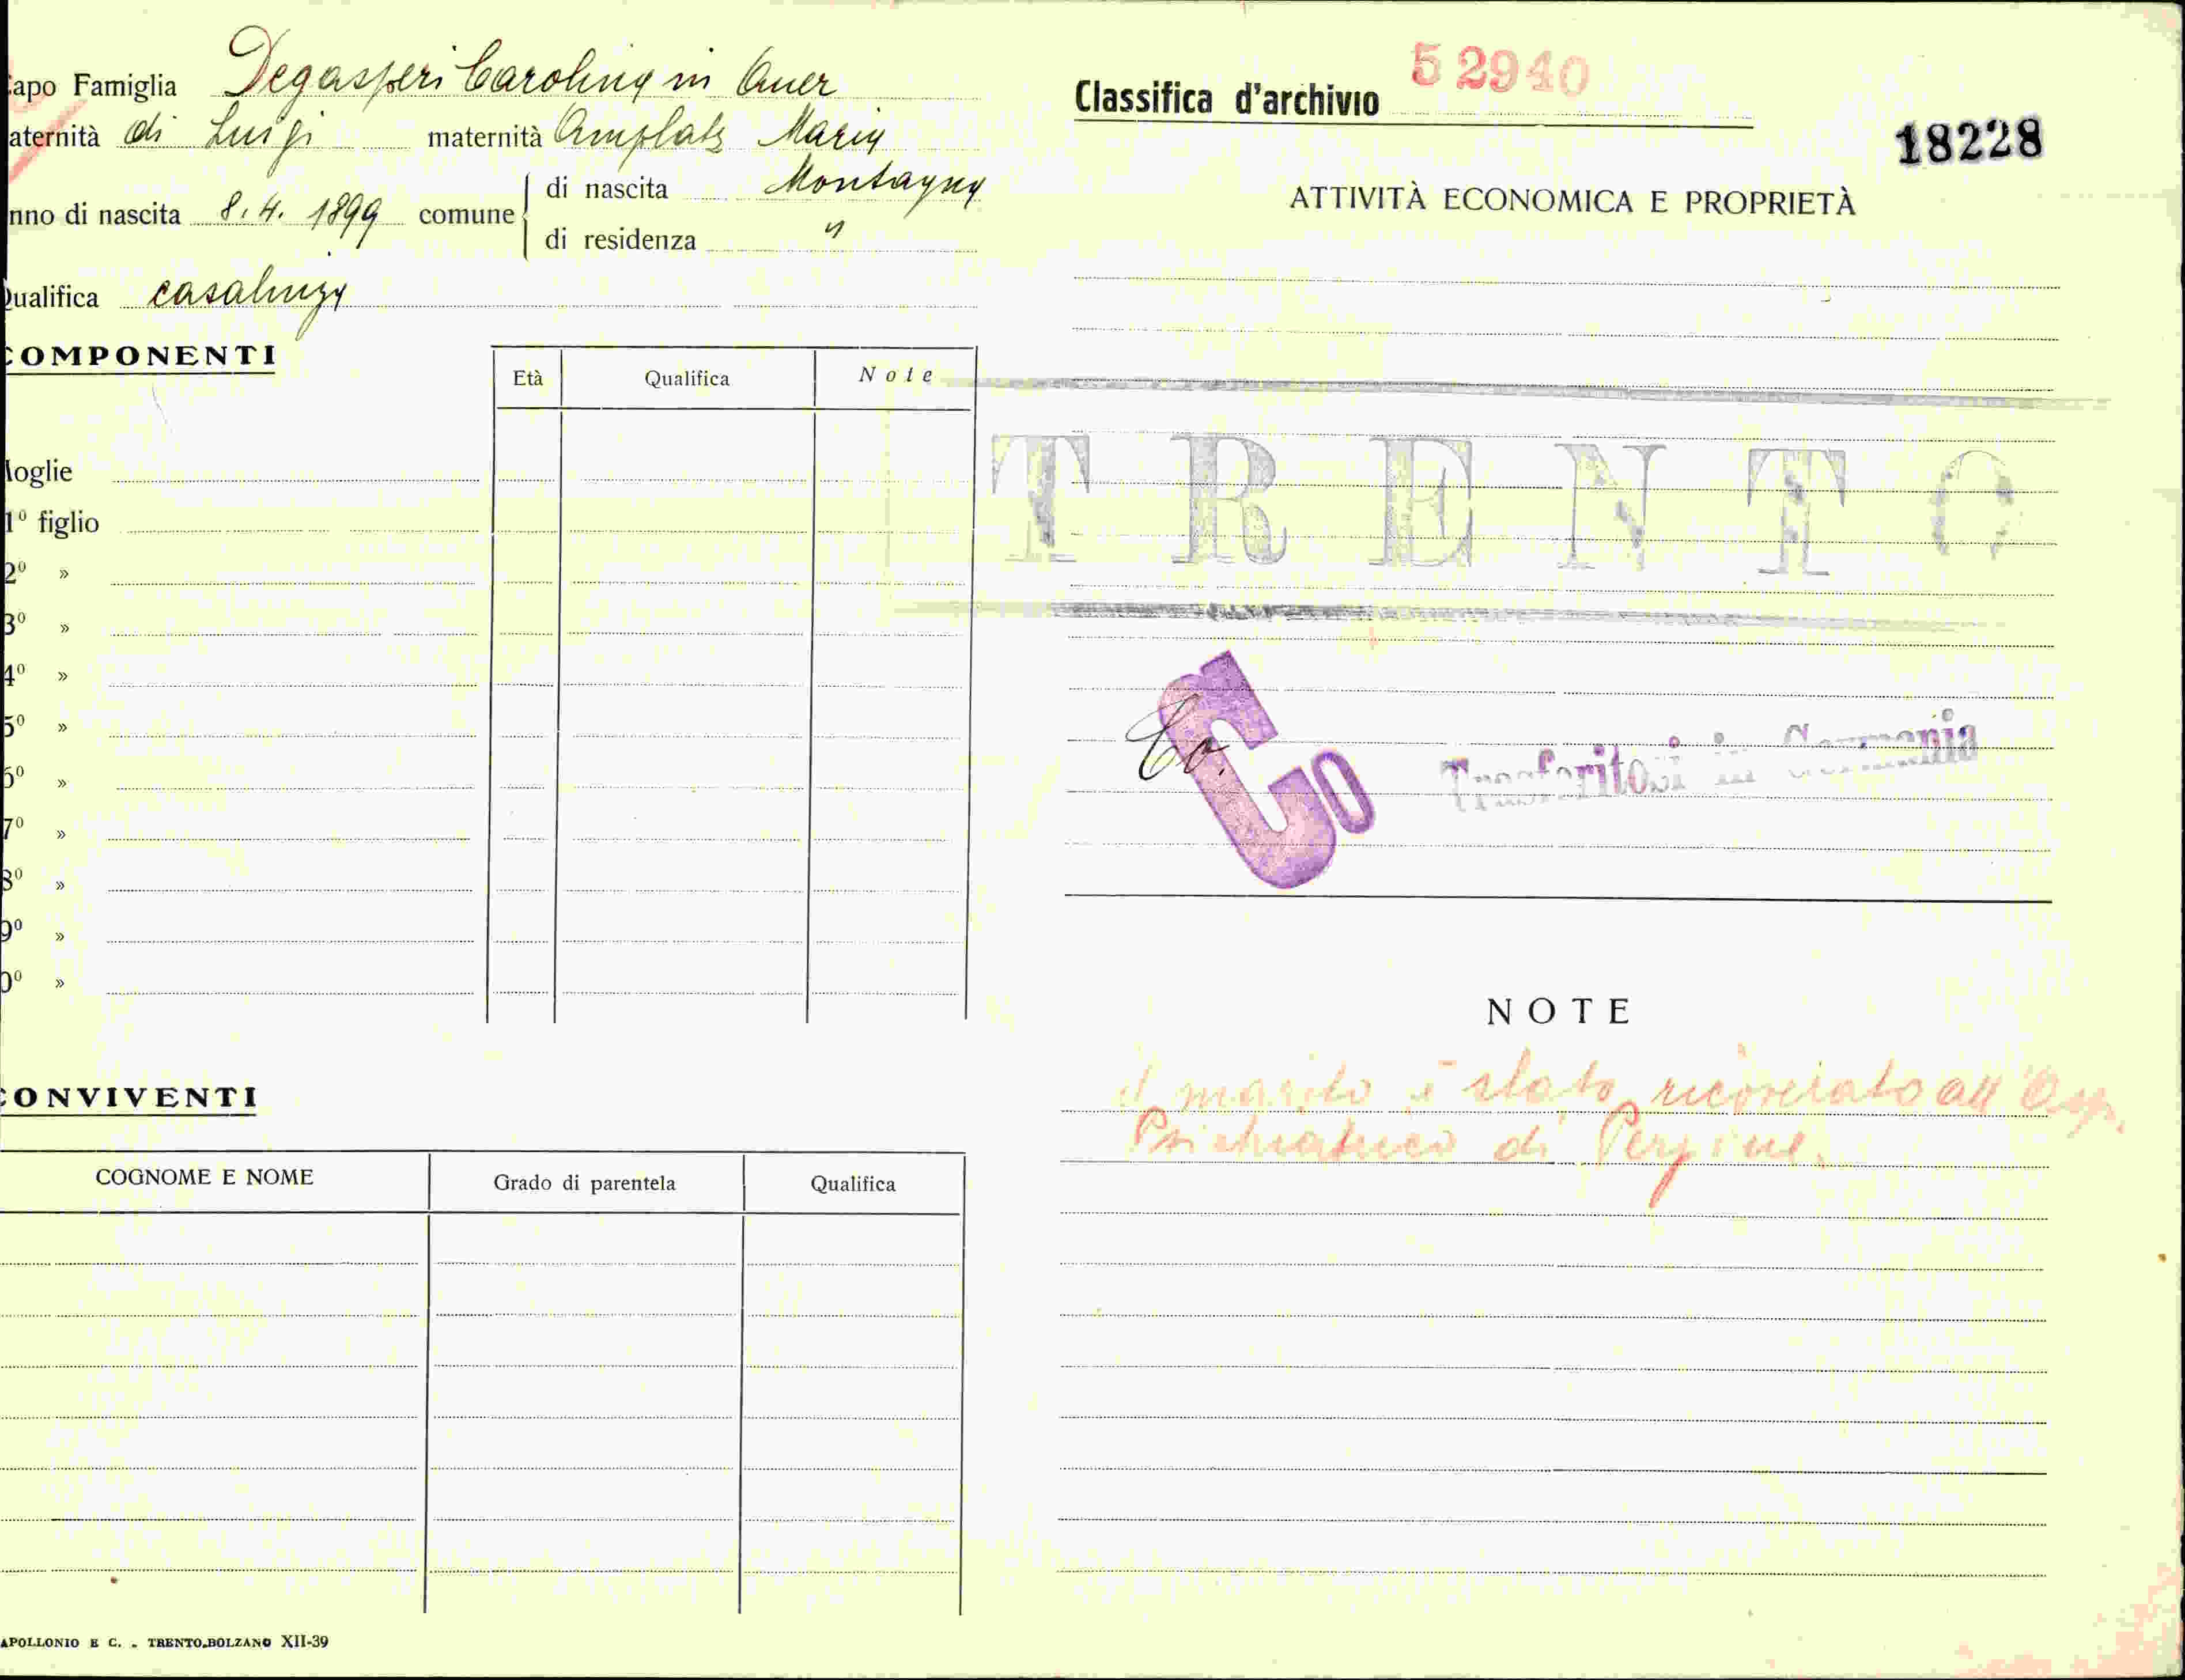 apo Famiglia Degasperi Carolina in Auer
aternità di Luigi maternità Amplatz Maria
nno di nascita 8.4.1899 comune di nascita Montagna
di residenza "
Qualifica casalinga
COMPONENTI
Età Qualifica Note
Moglie
1º figlio
2º »
3º »
4º »
5º »
6º »
7º »
8º »
9º »
0º »
CONVIVENTI
COGNOME E NOME Grado di parentela Qualifica
APOLLONIO E C. - TRENTO-BOLZANO XII-39
Classifica d'archivio 52940
18228
ATTIVITÀ ECONOMICA E PROPRIETÀ
TRENTO
Co.
Co
Trasferitosi in Germania
NOTE
il marito è stato ricoverato all'Osp.
Psichiatrico di Pergine.